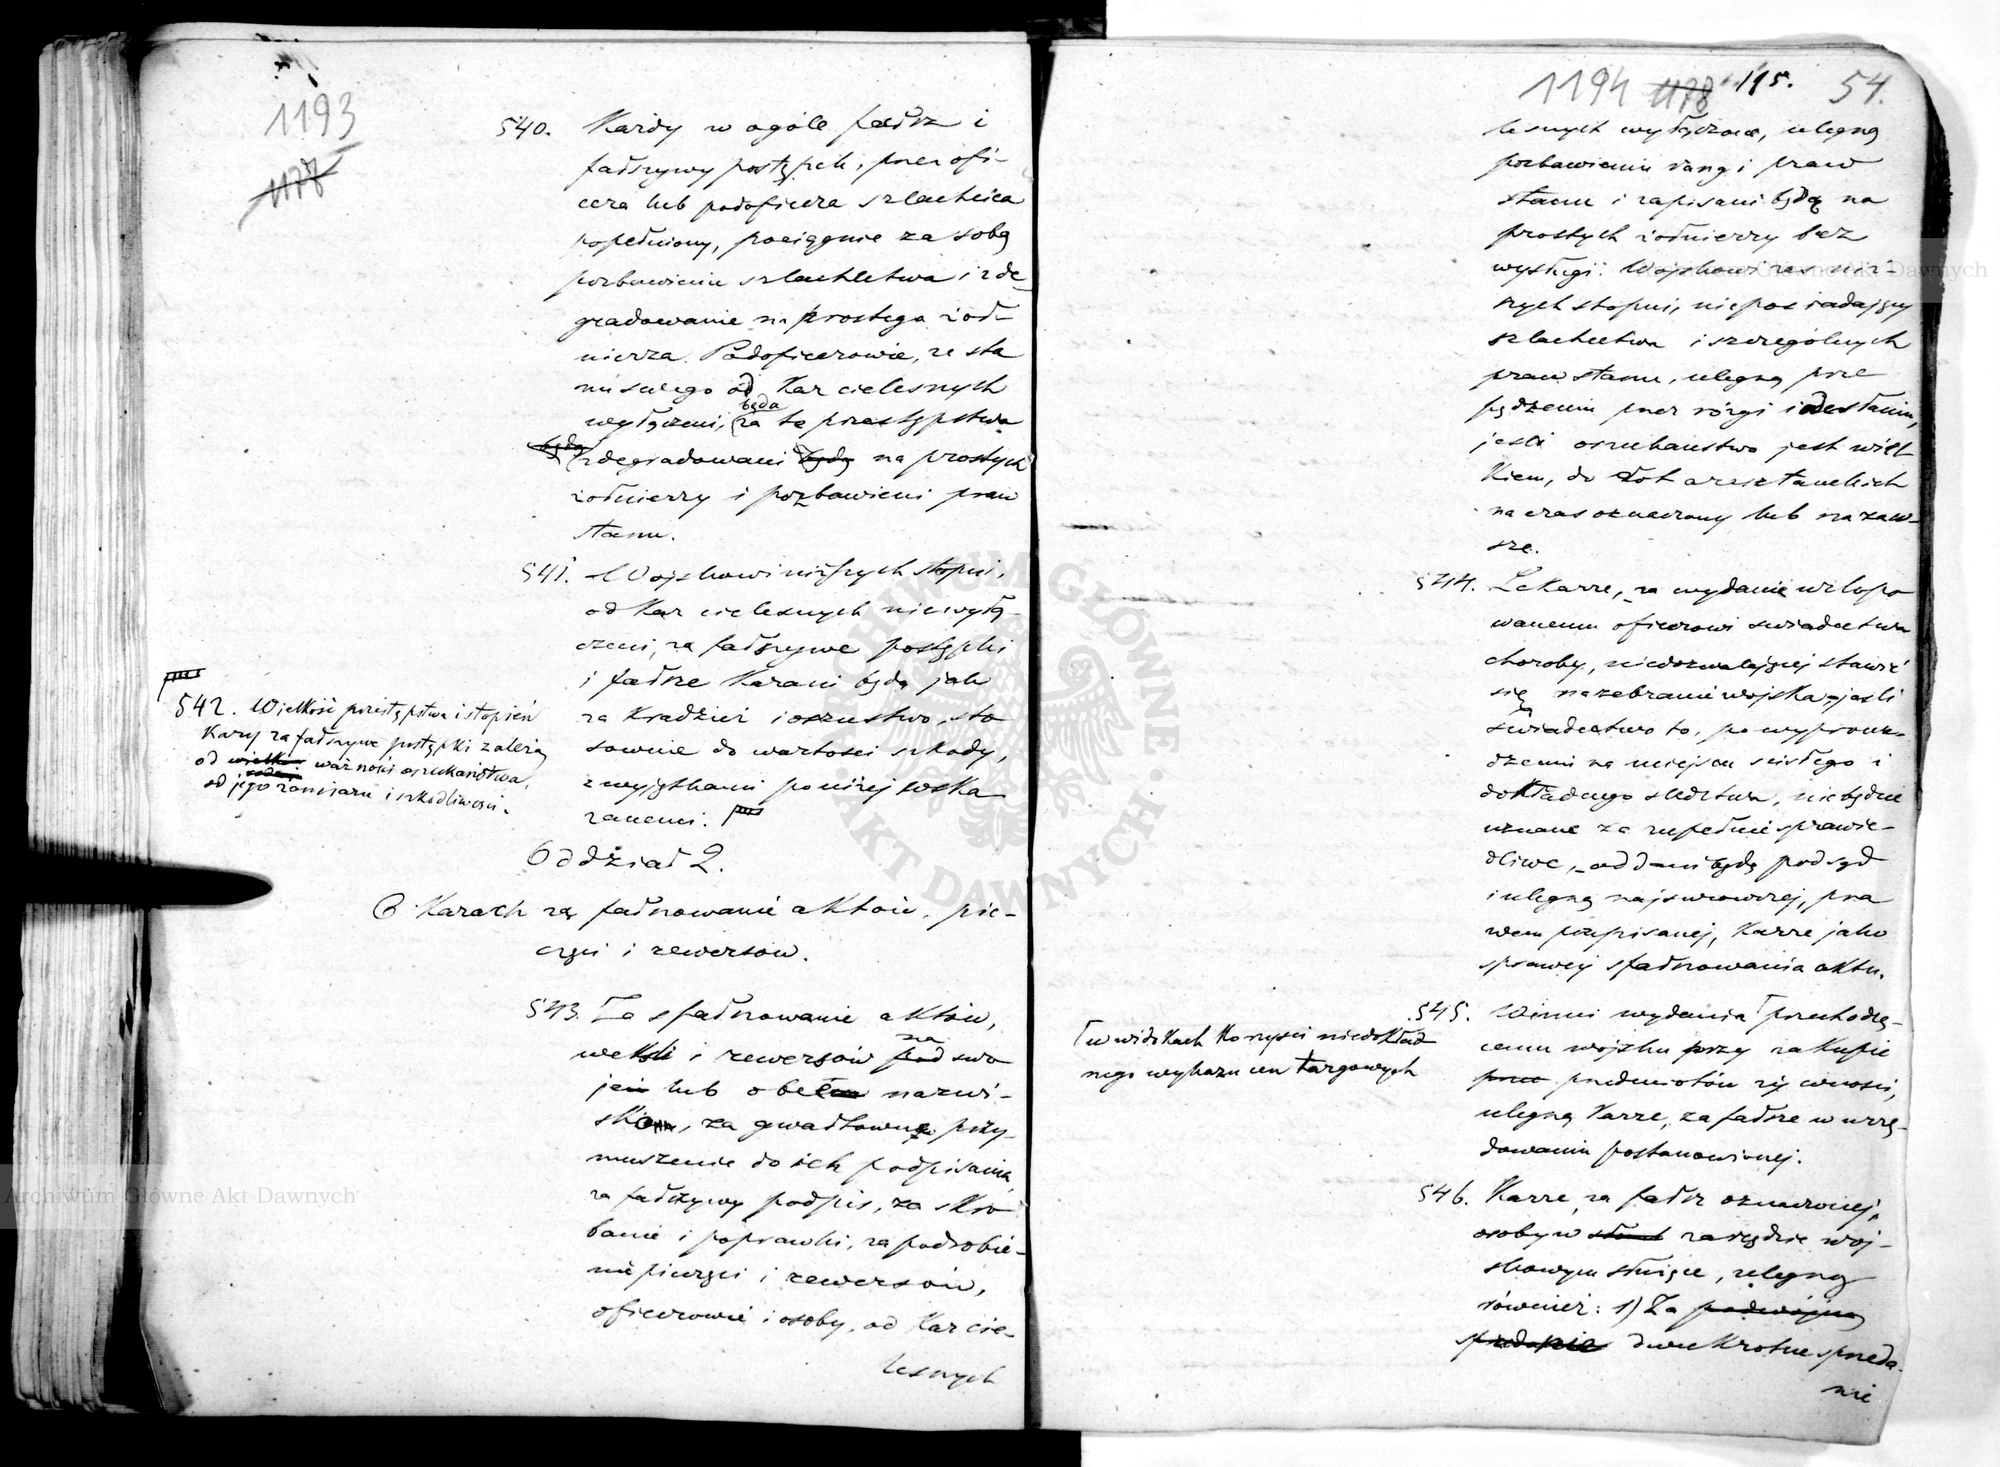 1193
1178
540. Każdy w ogóle fałsz i
fałszywy postępek, przez ofi-
cera lub podoficera szlachcica
popełniony, pociągnie za sobą
pozbawienie szlachectwa i zde-
gradowanie na prostego żoł-
nierza. Podoficerowie, ze sta
nu swego od kar cielesnych
wyłączeni, będą za te przestępstwa
zdegradowani będą na prostych
żołnierzy i pozbawieni praw
stanu.
541. Wojskowi niższych stopni,
od kar cielesnych niewyłą-
czeni, za fałszywe postępki
i fałsze karani będą jak
za kradzież i oszustwo, sto
sownie do wartości szkody,
z wyjątkami poniżej wska
zanemi.
542. Wielkość przestępstwa i stopień
kary za fałszywe postępki zależą
od ważności oszukaństwa,
od jego zamiaru i szkodliwości.
Oddział 2.
O Karach za fałszowanie aktów, pie-
częci i rewersów.
543. Za sfałszowanie aktów,
weksli i rewersów pod na swo
jem lub obcem nazwi-
skiem, za gwałtowne przy-
muszenie do ich podpisania,
za fałszywy podpis, za skro
banie i poprawki, za podrobie-
nie pieczęci i rewersów,
oficerowie i osoby, od kar cie-
lesnych
1194 1178 115. 54.
lesnych wyłączone, ulegną
pozbawieniu rangi praw
stanu i zapisani będą na
prostych żołnierzy bez
wysługi. Wojskowi zaś niż-
szych stopni, nieposiadający
szlachectwa i szczególnych
praw stanu, ulegną prze
pędzeniu przez rózgi i odesłaniu,
jeśli oszukaństwo jest wiel
kiem, do rot aresztanckich
na czas oznaczony lub na zaw-
sze.
544. Lekarze, za wydanie urlopo
wanemu oficerowi świadectwa
choroby, niedozwalającej stawić
się na zebranie wojska, jeśli
świadectwo to, po wyprowa-
dzeniu na miejscu ścisłego i
dokładnego śledztwa, nie będzie
uznane za zupełnie sprawie-
dliwe, oddani będą pod sąd
i ulegną najsurowszej, pra
wem przepisanej, karze jako
sprawcy sfałszowania aktu.
545. Winni wydania przechodzą-
cemu wojsku przy zakupie
przedmiotów żywności,
ulegną karze, za fałsze w urzę-
dowaniu postanowionej.
w widokach korzyści niedokład
nego wykazu cen targowych
546. Karze, za fałsz oznaczonej,
osoby w zarządzie woj-
skowym służące, ulegną
również: 1) Za podwójną
dwukrotne sprzeda-
nie